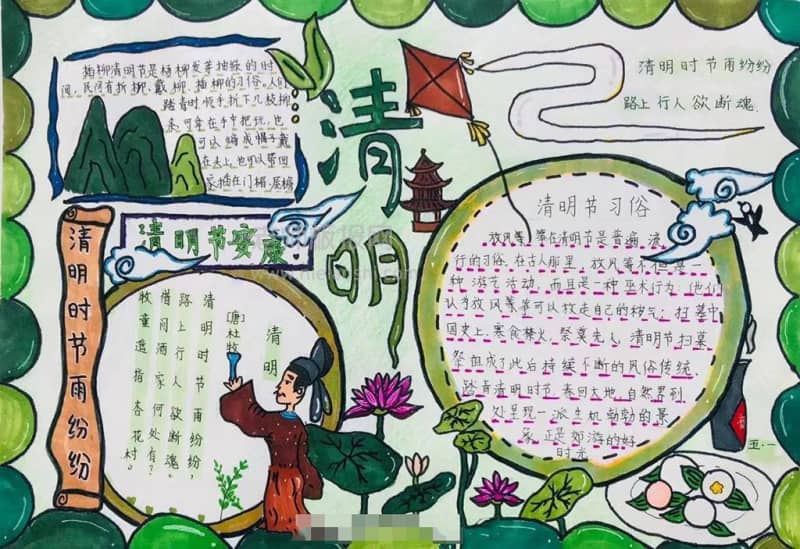 插柳清明节是杨柳发芽抽绿的时
间，民间有折柳、戴柳、插柳的习俗。人们
踏青时顺手折下几枝柳
条，可拿在手中把玩，也
可以编成帽子戴
在头上，也可以带回
家插在门楣、屋檐
清明
清明时节雨纷纷
路上行人欲断魂.
清明时节雨纷纷
清明节安康
清明
[唐]杜牧
清明时节雨纷纷，
路上行人欲断魂。
借问酒家何处有？
牧童遥指杏花村。
清明节习俗
放风筝
在清明节是普遍流
行的习俗，在古人那里，放风筝不但是一
种游艺活动，而且是一种巫术行为：他们
认为放风筝可以放走自己的秽气；扫墓中
国史上，寒食禁火，祭奠先人，清明节扫墓
祭祖成了此后持续不断的风俗传统，
踏青清明时节，春回大地，自然界到
处呈现一派生机勃勃的景
象，正是郊游的好
时光
五·一